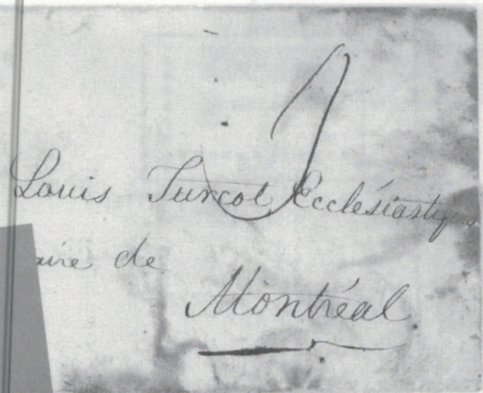 Louis Turcot Ecclésiastique
aire de
Montréal